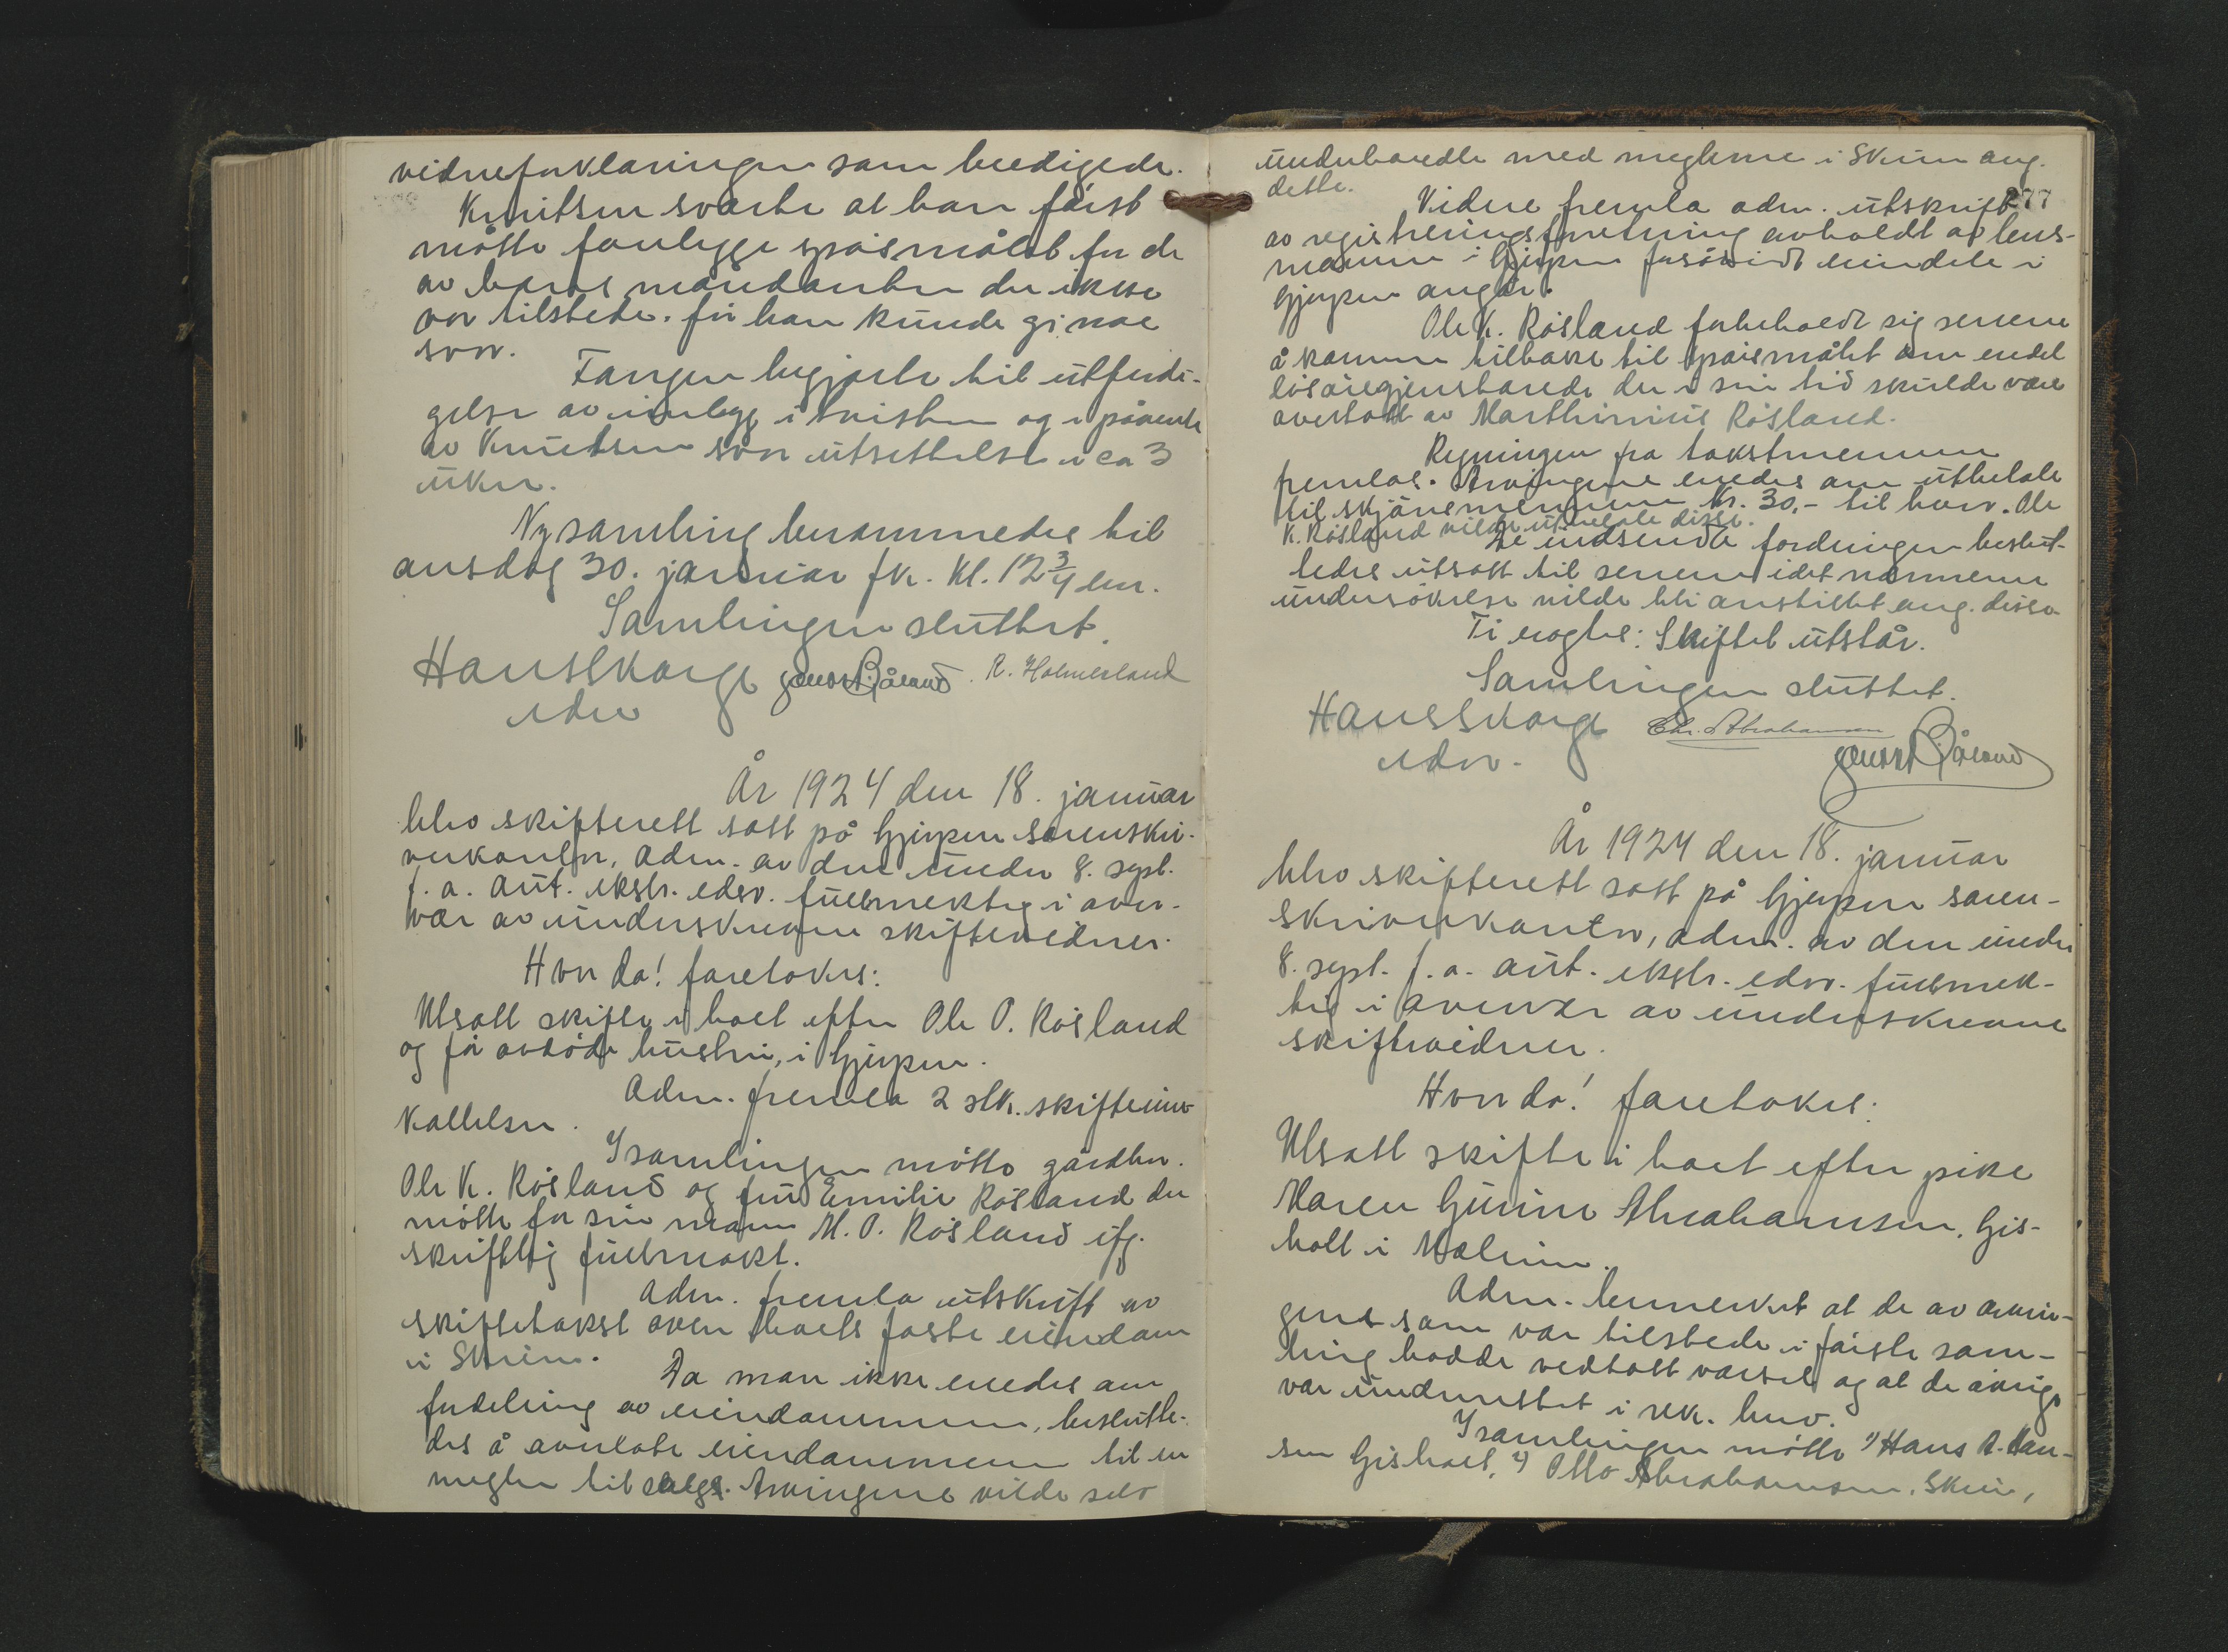 vidneforklaringen som beedigede.
Knutsen svarte at han først
måtte forelegge spørsmålet for de
av hans mandanter der ikke
var tilstede, før han kunde gi noe
svar.
Fangen begjærte til utferdi-
gelse av innlegg i tvisten og i påvente
av Knutsens svar utsettelse i ca 3
uker.
Ny samling berammedes til
onsdag 30. januar fk. kl. 12 3/4 em.
Samlingen sluttet.
Hans Skarge Jens H. Båland. R. Holmesland
edsv
År 1924 den 18. januar
blev skifterett satt på Gjerpen sorenskri-
verkontor, adm. av den under 8. sept.
f. a. aut. ekstr. edsv. fullmektig i over-
vær av underskrevne skiftevidner.
Hvor da! foretokes:
Utsatt skifte i boet efter Ole O. Røsland
og før avdøde hustru, i Gjerpen.
Adm. fremla 2 stk. skifteinn-
kallelser.
I samlingen møtte gårdbr.
Ole K. Røsland og fru Emilie Røsland der
møtte for sin mann M. O. Røsland ifg.
skriftlig fullmakt.
Adm. fremla utskrift av
skiftetakst over boets faste eiendom
i Skien.
Da man ikke enedes om
fordeling av eiendommen, beslutte-
des å overlate eiendommen til en
megler til salgs. Arvingene vilde selv
underhandle med meglerne i Skien ang.
dette.
277
Videre fremla adm. utskrift
av registreringsforretning avholdt av lens-
mannen i Gjerpen forsåvidt eiendele i
Gjerpen angår.
Ole K. Røsland forbeholdt sig senere
å komme tilbake til spørsmålet om endel
løsøregjenstande der i sin tid skulde være
overtatt av Marthinius Røsland.
Regningen fra takstmennene
fremlas. Arvingene enedes om utbetale
til skjønsmennene kr. 30,- til hver. Ole
K. Røsland vilde utbetale disse.
De indsendte fordringer beslut-
tedes utsatt til senere idet nærmere
undersøkelse vilde bli anstillet ang. disse
Ti eragtes: Skiftet utstår.
Samlingen sluttet.
Hans Skarge Chr. Abrahamsen
edsv. Jens H. Båland
År 1924 den 18. januar
blev skifterett satt på Gjerpen soren-
skriverkontor, adm. av den under
8. sept. f. a. aut. ekstr. edsv. fullmek-
tig i overvær av underskrevne
skiftevidner.
Hvor da! foretokes:
Utsatt skifte i boet efter pike
Maren Gurine Abrahamsen, Gis-
holt i Mælum.
Adm. bemerket at de av arvin-
gene som var tilstede i første sam-
ling hadde vedtatt varsel og at de øvrige
var underrettet i rek. brev.
I samlingen møtte 1) Hans A. Han-
sen Gisholt, 2) Otto Abrahamsen, Skien,